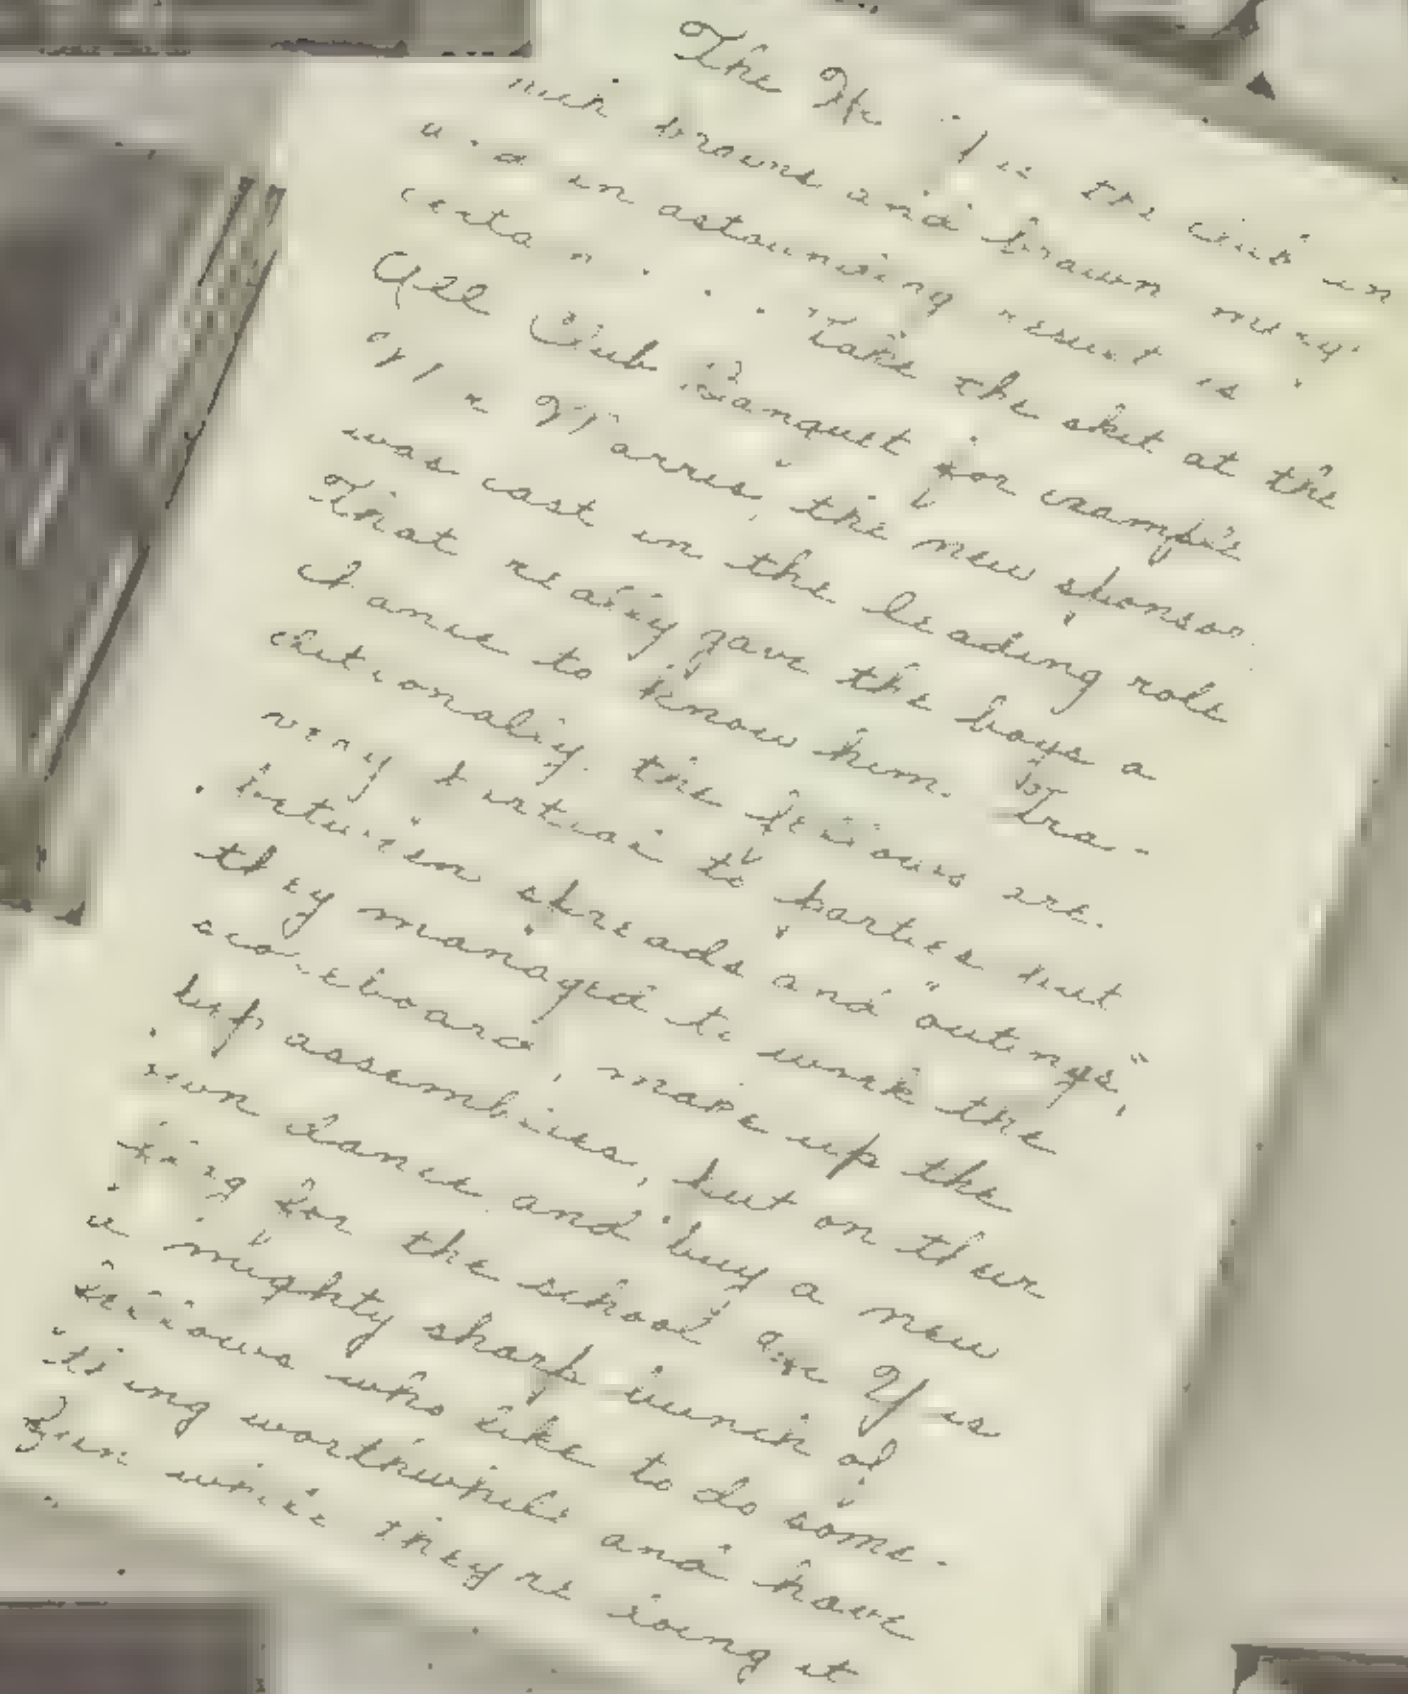 The Hi Y is the club in
which brains and brawn merge
and an astounding result is
certain. . . . Take the skit at the
All Club Banquet for example
Mr. Norris, the new sponsor
was cast in the leading role
That really gave the boys a
chance to know him. Tra-
ditionally the fellows are
very partial to parties but
between spreads and "outings",
they managed to work the
scoreboard, make up the
pep assemblies, put on their
own dance and buy a new
flag for the school Hi Y is
a mighty sharp bunch of
fellows who like to do some-
thing worthwhile and have
fun while they're doing it